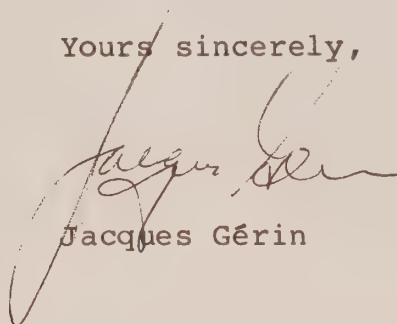 Yours sincerely,
Jacques Gérin
Jacques Gérin